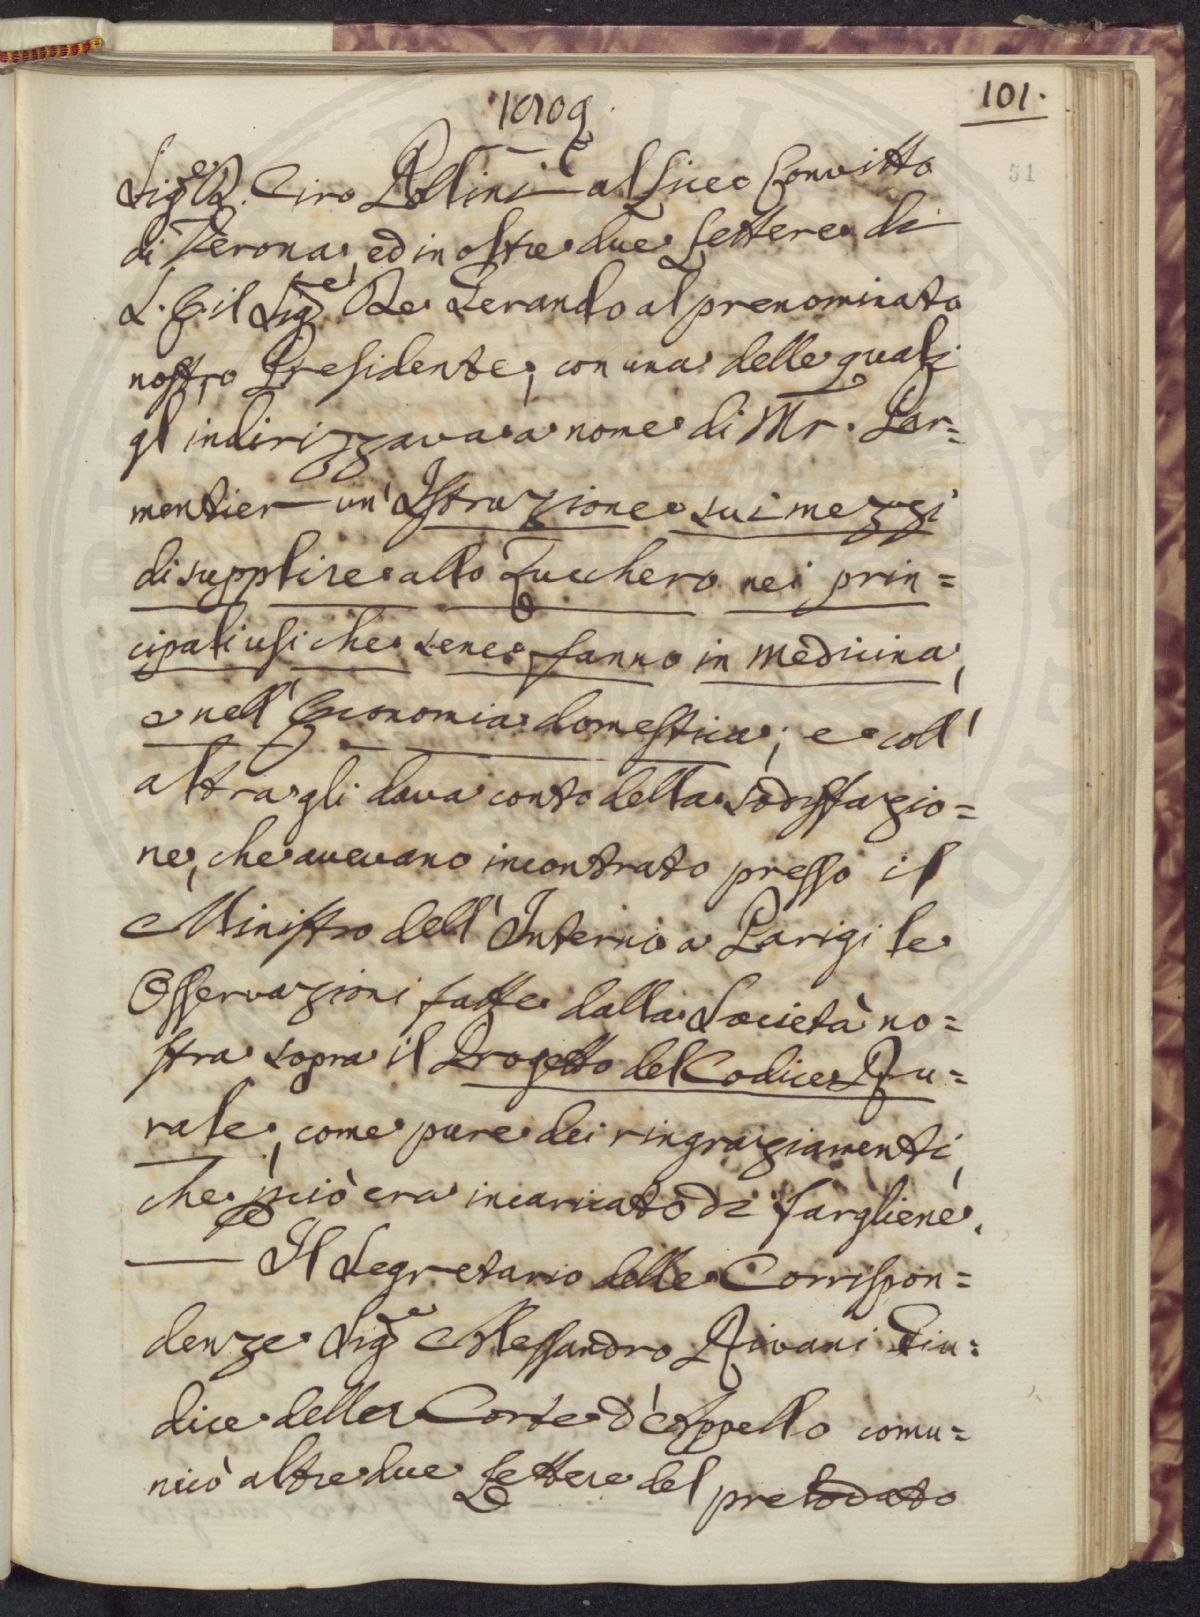 1809.
101.
51
Sig.r D. Ciro Pollini al Liceo Convitto
di Verona, ed in oltre due Lettere di
S. E. il Sig.re De Gerando al prenominato
nostro Presidente, con una delle quali
gl'indirizzava a nome di Mr. Par=
mentier un'Istruzione sui mezzi
di supplire allo Zucchero nei prin=
cipali usi che sene fanno in medicina,
e nell'Economia domestica; e coll'
altra gli dava conto della sodisfazio=
ne, che avevano incontrato presso il
Ministro dell'Interno a Parigi le
Osservazioni fatte dalla Società no=
stra sopra il Progetto del Codice Ru=
rale, come pure dei ringraziamenti,
che perciò era incaricato di fargliene.
— Il Segretario delle Corrispon=
denze Sig.re Alessandro Rivani Giu=
dice della Corte d'Appello comu=
nicò altre due Lettere del prelodato